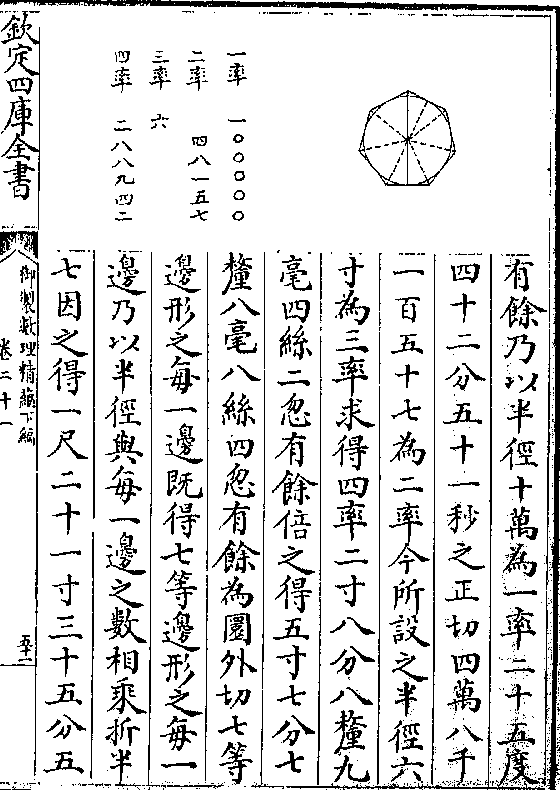 一率　一〇〇〇〇〇
二率　四八一五七
三率　六
四率　二八八九四二
有餘乃以半徑十萬為一率二十五度
四十二分五十一秒之正切四萬八千
一百五十七為二率今所設之半徑六
寸為三率求得四率二寸八分八釐九
毫四絲二忽有餘倍之得五寸七分七
釐八毫八絲四忽有餘為圜外切七等
邊形之每一邊既得七等邊形之每一
邊乃以半徑與每一邊之數相乘折半
七因之得一尺二十一寸三十五分五
欽定四庫全書
御製數理精蘊下編
卷二十一